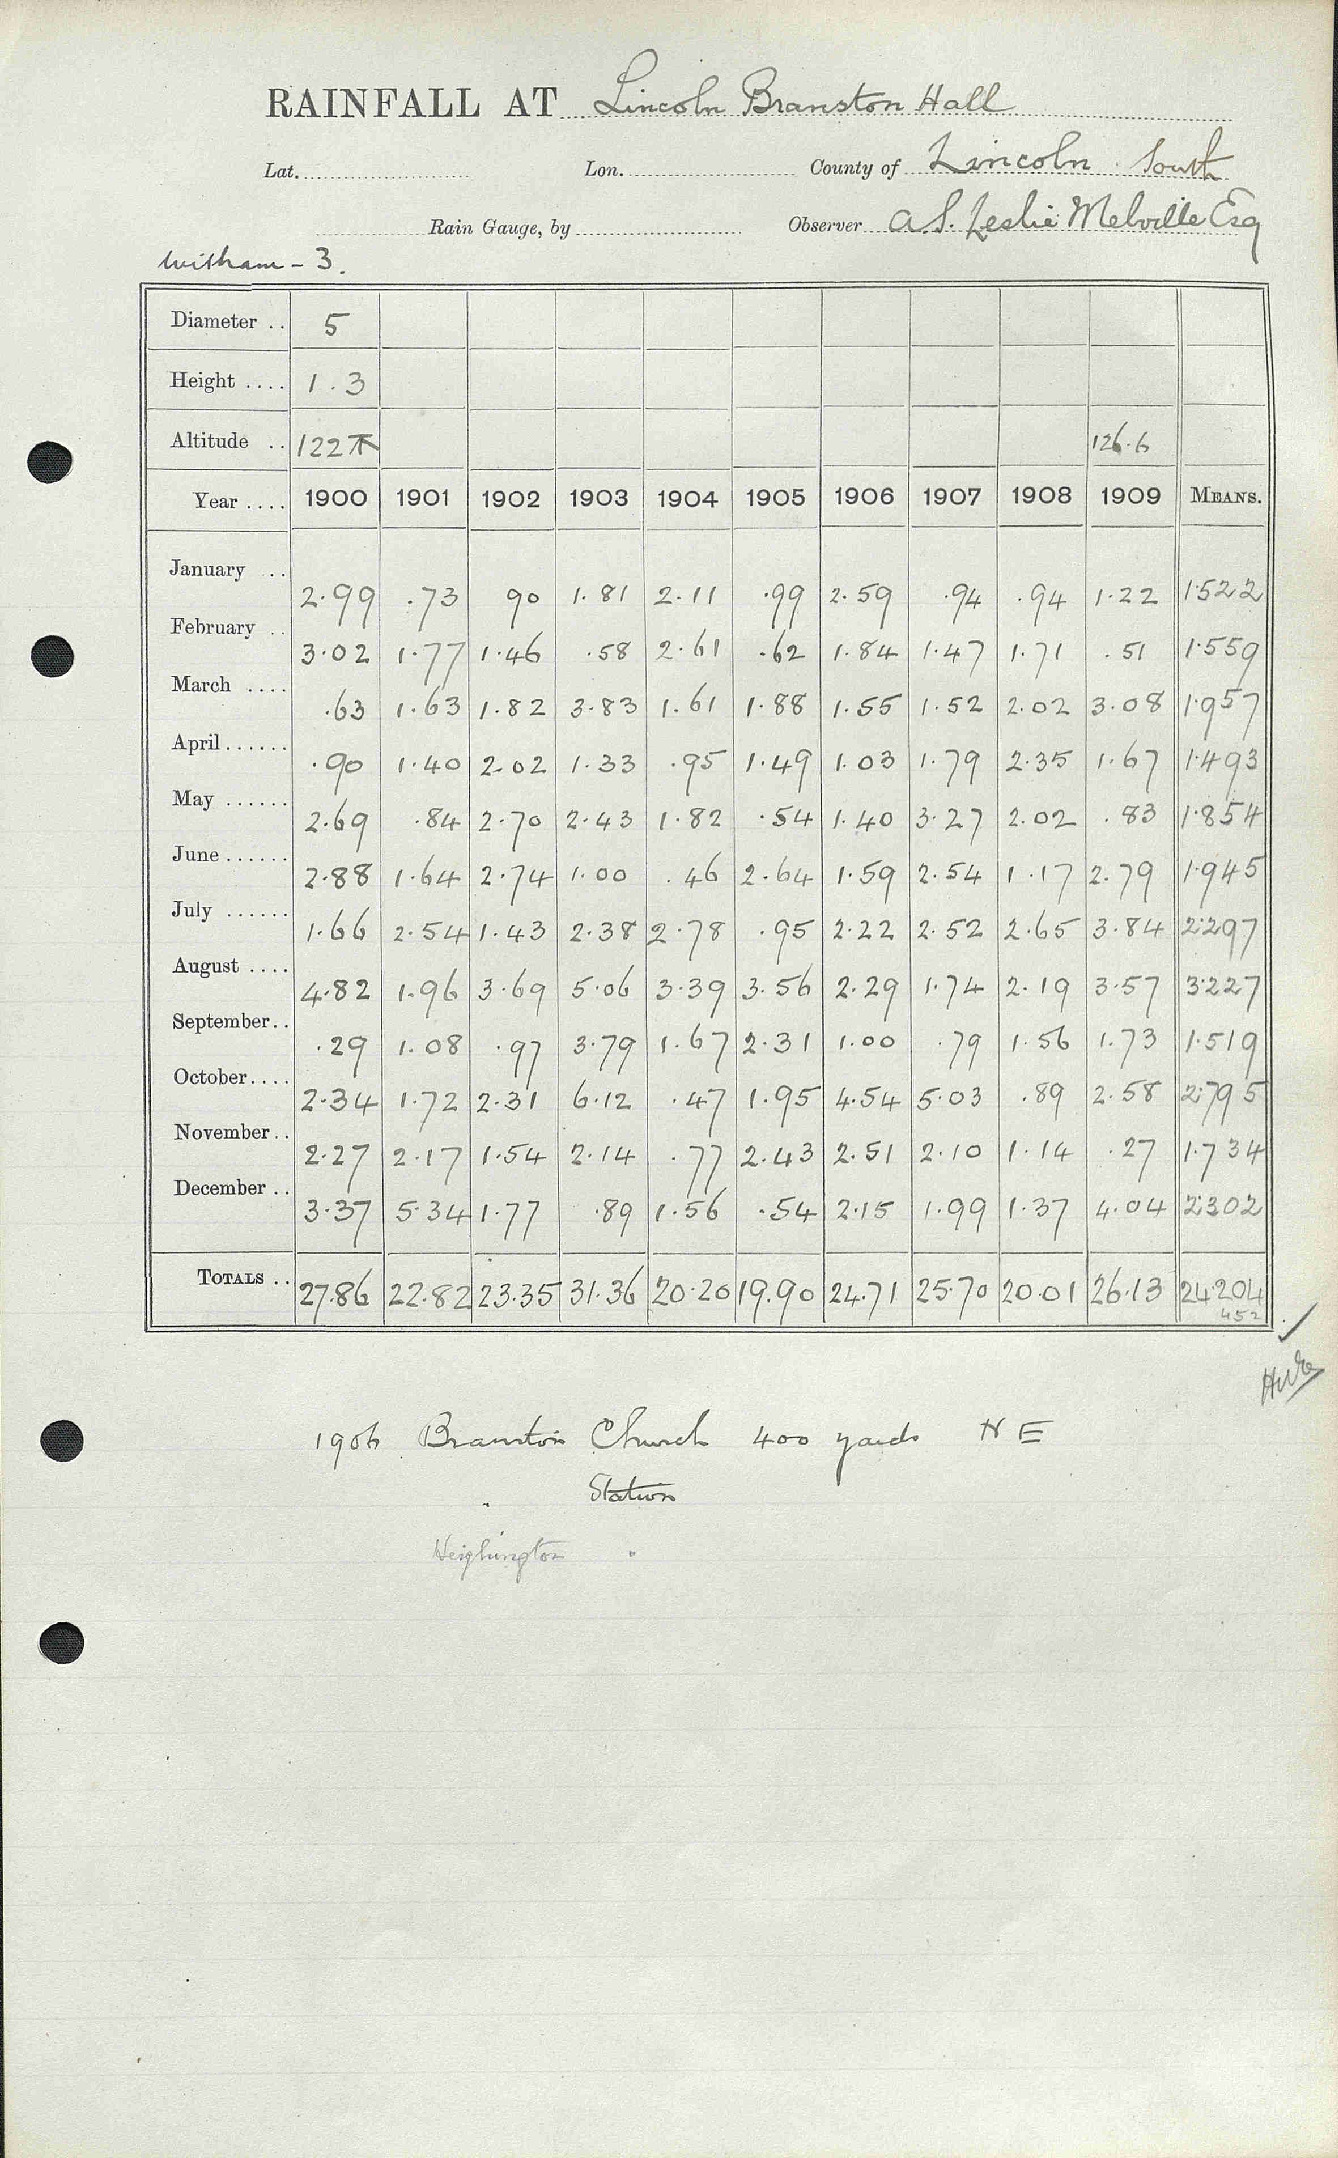 RAINFALL AT Lincoln Branston Hall
Lat. Lon. County of Lincoln South
Rain Gauge, by Observer A S. Leslie Melville Esq
Witham - 3.
Diameter .. 5
Height .... 1.3
Altitude .. 122 126.6
Year .... 1900 1901 1902 1903 1904 1905 1906 1907 1908 1909 MEANS.
January .. 2.99 .73 90 1.81 2.11 .99 2.59 .94 .94 1.22 1.522
February .. 3.02 1.77 1.46 .58 2.61 .62 1.84 1.47 1.71 .51 1.559
March .... .63 1.63 1.82 3.83 1.61 1.88 1.55 1.52 2.02 3.08 1.957
April ...... .90 1.40 2.02 1.33 .95 1.49 1.03 1.79 2.35 1.67 1.493
May ...... 2.69 .84 2.70 2.43 1.82 .54 1.40 3.27 2.02 .83 1.854
June ...... 2.88 1.64 2.74 1.00 .46 2.64 1.59 2.54 1.17 2.79 1.945
July ...... 1.66 2.54 1.43 2.38 2.78 .95 2.22 2.52 2.65 3.84 2.297
August .... 4.82 1.96 3.69 5.06 3.39 3.56 2.29 1.74 2.19 3.57 3.227
September .. .29 1.08 .97 3.79 1.67 2.31 1.00 .79 1.56 1.73 1.519
October .... 2.34 1.72 2.31 6.12 .47 1.95 4.54 5.03 .89 2.58 2.795
November .. 2.27 2.17 1.54 2.14 .77 2.43 2.51 2.10 1.14 .27 1.734
December .. 3.37 5.34 1.77 .89 1.56 .54 2.15 1.99 1.37 4.04 2.302
TOTALS .. 27.86 22.82 23.35 31.36 20.20 19.90 24.71 25.70 20.01 26.13 24.204
452
1906 Branston Church 400 yards N E
" Station
Heighington "